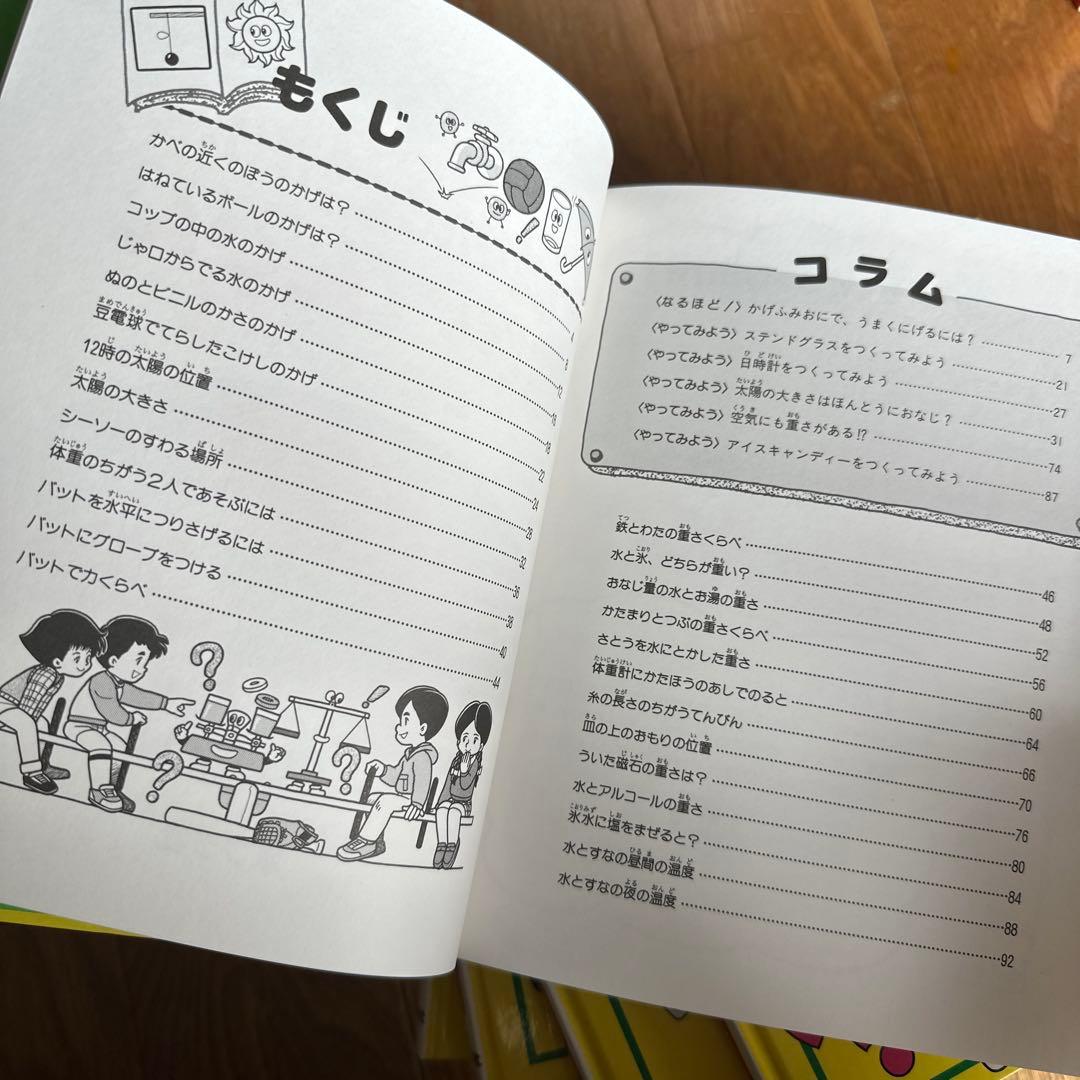 もくじ
かべの近くのほうのかげは？
はねているボールのかげは？ 8
コップの中の水のかげ 12
じゃ口からでる水のかげ 16
ぬのとビニルのかさのかげ 18
豆電球でてらしたこけしのかげ 22
12時の太陽の位置 24
太陽の大きさ 28
シーソーのすわる場所 32
体重のちがう２人であそぶには 36
バットを水平につりさげるには 38
バットにグローブをつける 40
バットで力くらべ 44
コラム
〈なるほど！〉かげふみおにで、うまくにげるには？ 7
〈やってみよう〉ステンドグラスをつくってみよう 21
〈やってみよう〉日時計をつくってみよう 27
〈やってみよう〉太陽の大きさはほんとうにおなじ？ 31
〈やってみよう〉空気にも重さがある!? 74
〈やってみよう〉アイスキャンディーをつくってみよう 87
鉄とわたの重さくらべ 46
水と氷、どちらが重い？ 48
おなじ量の水とお湯の重さ 52
かたまりとつぶの重さくらべ 56
さとうを水にとかした重さ 60
体重計にかたほうのあしでのると 64
糸の長さのちがうてんびん 66
皿の上のおもりの位置 70
ういた磁石の重さは？ 76
水とアルコールの重さ 80
氷水に塩をまぜると？ 84
水とすなの昼間の温度 88
水とすなの夜の温度 92